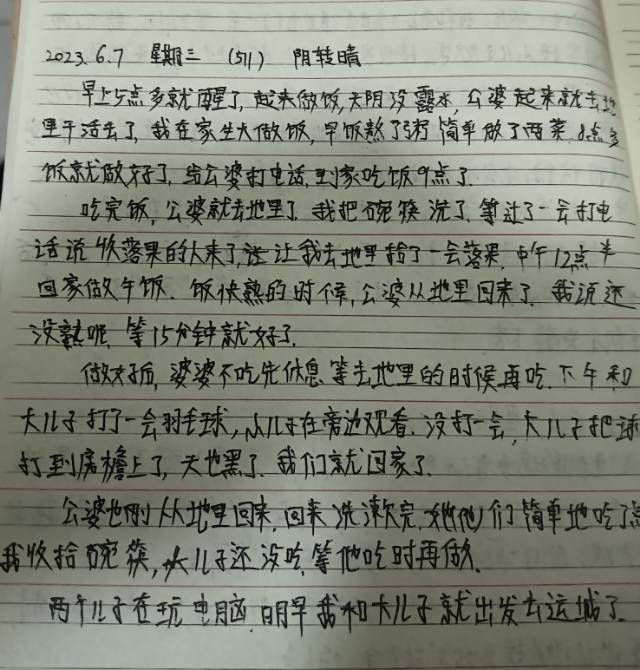 2023.6.7 星期三 (511) 阴转晴
早上5点多就醒了,起来做饭,天阴没露水,公婆起来就去地
里干活去了,我在家生火做饭,早饭熬了粥简单做了两菜.8点多
饭就做好了,给公婆打电话,到家吃饭9点了.
吃完饭,公婆就去地里了.我把碗筷洗了.等过了一会打电
话说收落果的人来了,让我去地里拾了一会落果.中午12点半
回家做午饭.饭快熟的时候,公婆从地里回来了.我说还
没熟呢,等15分钟就好了.
做好后,婆婆不吃先休息.等去地里的时候再吃.下午和
大儿子打了一会羽毛球,小儿子在旁边观看.没打一会,大儿子把球
打到房檐上了,天也黑了.我们就回家了.
公婆也刚从地里回来,回来洗漱完,他们简单地吃了点
我收拾碗筷,大儿子还没吃,等他吃时再做.
两个儿子在玩电脑.明早我和大儿子就出发去运城了.